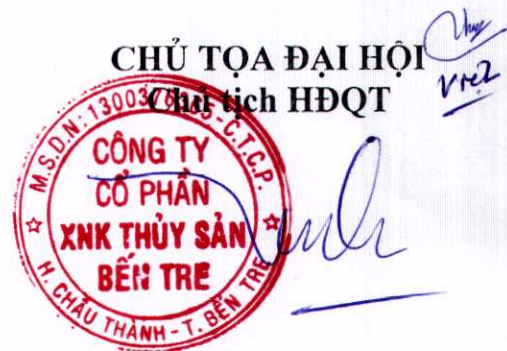 CHỦ TỌA ĐẠI HỘI
Chủ tịch HĐQT
CÔNG TY
CỔ PHẦN
XNK THỦY SẢN
BẾN TRE
H. CHÂU THÀNH - T. BẾN TRE